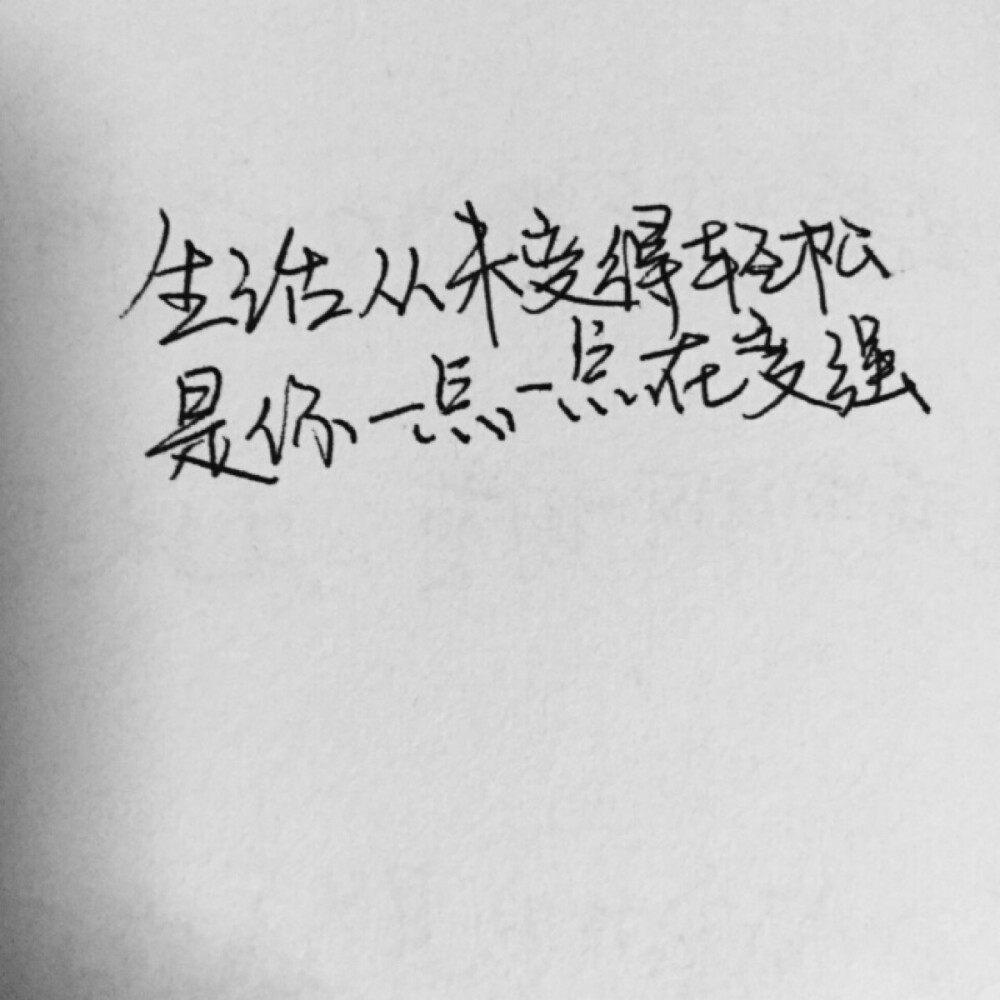 生活从未变得轻松
是你一点一点在变强